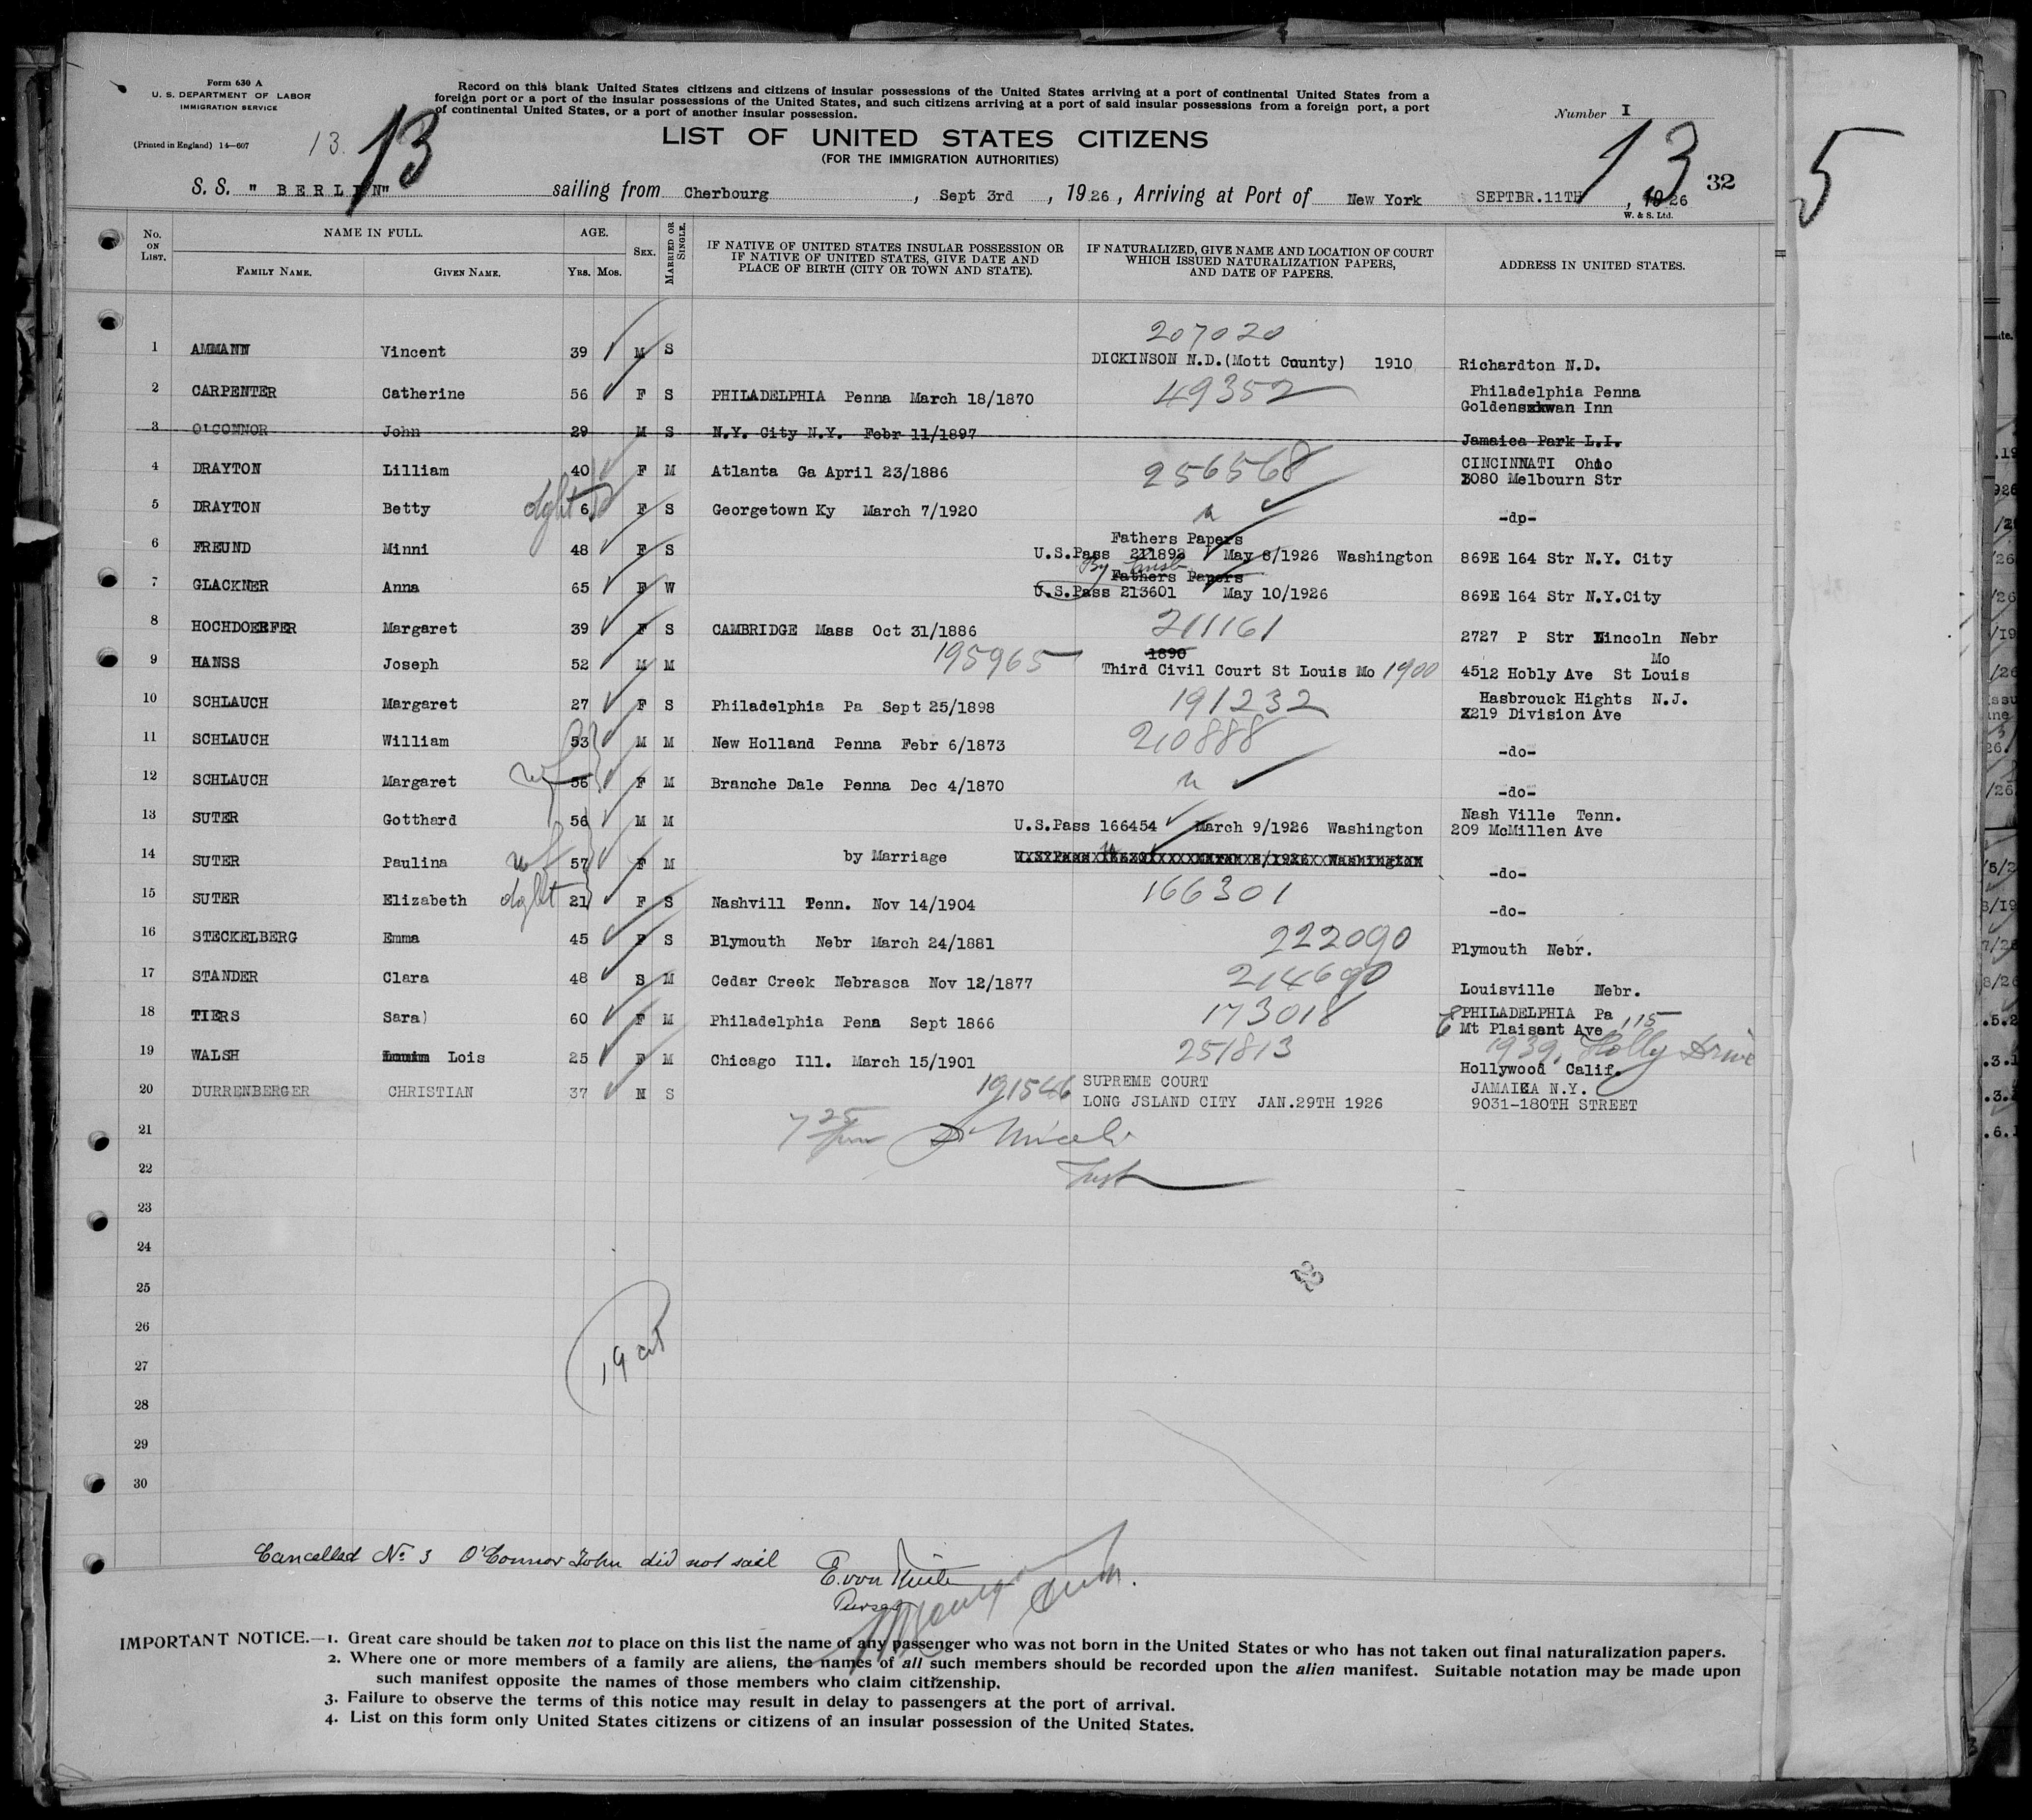 Form 630 A
U. S. DEPARTMENT OF LABOR
IMMIGRATION SERVICE
(Printed in England) 14—607
13.
13
Record on this blank United States citizens and citizens of insular possessions of the United States arriving at a port of continental United States from a
foreign port or a port of the insular possessions of the United States, and such citizens arriving at a port of said insular possessions from a foreign port, a port
of continental United States, or a port of another insular possession.
Number I
13
5
LIST OF UNITED STATES CITIZENS
(FOR THE IMMIGRATION AUTHORITIES)
32
S. S. " BERLIN" sailing from Cherbourg , Sept 3rd , 1926 , Arriving at Port of New York SEPTBR.11TH , 1926
W. & S. Ltd.
No. ON LIST. NAME IN FULL. FAMILY NAME. GIVEN NAME. AGE. YRS. MOS. SEX. MARRIED OR SINGLE. IF NATIVE OF UNITED STATES INSULAR POSSESSION OR IF NATIVE OF UNITED STATES, GIVE DATE AND PLACE OF BIRTH (CITY OR TOWN AND STATE). IF NATURALIZED, GIVE NAME AND LOCATION OF COURT WHICH ISSUED NATURALIZATION PAPERS, AND DATE OF PAPERS. ADDRESS IN UNITED STATES.
207020
1 AMMANN Vincent 39 M S DICKINSON N.D.(Mott County) 1910 Richardton N.D.
2 CARPENTER Catherine 56 F S PHILADELPHIA Penna March 18/1870 49352 Philadelphia Penna
Goldenswan Inn
3 O'CONNOR John 29 M S N.Y. City N.Y. Febr 11/1897 Jamaica Park L.I.
4 DRAYTON Lilliam 40 F M Atlanta Ga April 23/1886 256568 CINCINNATI Ohio
3080 Melbourn Str
5 DRAYTON Betty dght 6 F S Georgetown Ky March 7/1920 " -dp-
Fathers Papers
6 FREUND Minni 48 F S U.S.Pass 211892 May 8/1926 Washington 869E 164 Str N.Y. City
By
Fathers Papers
7 GLACKNER Anna 65 F W U.S.Pass 213601 May 10/1926 869E 164 Str N.Y.City
8 HOCHDOERFER Margaret 39 F S CAMBRIDGE Mass Oct 31/1886 211161 2727 P Str Lincoln Nebr
195965 1890 Mo
9 HANSS Joseph 52 M M Third Civil Court St Louis Mo 1900 4512 Hobly Ave St Louis
10 SCHLAUCH Margaret 27 F S Philadelphia Pa Sept 25/1898 191232 Hasbrouck Hights N.J.
219 Division Ave
11 SCHLAUCH William 53 M M New Holland Penna Febr 6/1873 210888 -do-
12 SCHLAUCH Margaret wf 56 F M Branche Dale Penna Dec 4/1870 " -do-
13 SUTER Gotthard 56 M M U.S.Pass 166454 March 9/1926 Washington Nash Ville Tenn.
209 McMillen Ave
14 SUTER Paulina wf 57 F M by Marriage " -do-
15 SUTER Elizabeth dght 21 F S Nashvill Tenn. Nov 14/1904 166301 -do-
16 STECKELBERG Emma 45 F S Blymouth Nebr March 24/1881 222090 Plymouth Nebr.
17 STANDER Clara 48 S M Cedar Creek Nebrasca Nov 12/1877 214690 Louisville Nebr.
18 TIERS Sara) 60 F M Philadelphia Pena Sept 1866 173018 PHILADELPHIA Pa
E Mt Plaisant Ave 115
19 WALSH Lois 25 F M Chicago Ill. March 15/1901 251813 1939, Holly Drive
Hollywood Calif.
20 DURRENBERGER CHRISTIAN 37 N S 191546 SUPREME COURT JAMAICA N.Y.
LONG JSLAND CITY JAN.29TH 1926 9031-180TH STREET
21
22
23
24
25
26
27
28
29
30
22
19 cit
Cancelled No. 3 O'Connor John did not sail
E. von
Purser
IMPORTANT NOTICE.—1. Great care should be taken not to place on this list the name of any passenger who was not born in the United States or who has not taken out final naturalization papers.
2. Where one or more members of a family are aliens, the names of all such members should be recorded upon the alien manifest. Suitable notation may be made upon
such manifest opposite the names of those members who claim citizenship.
3. Failure to observe the terms of this notice may result in delay to passengers at the port of arrival.
4. List on this form only United States citizens or citizens of an insular possession of the United States.